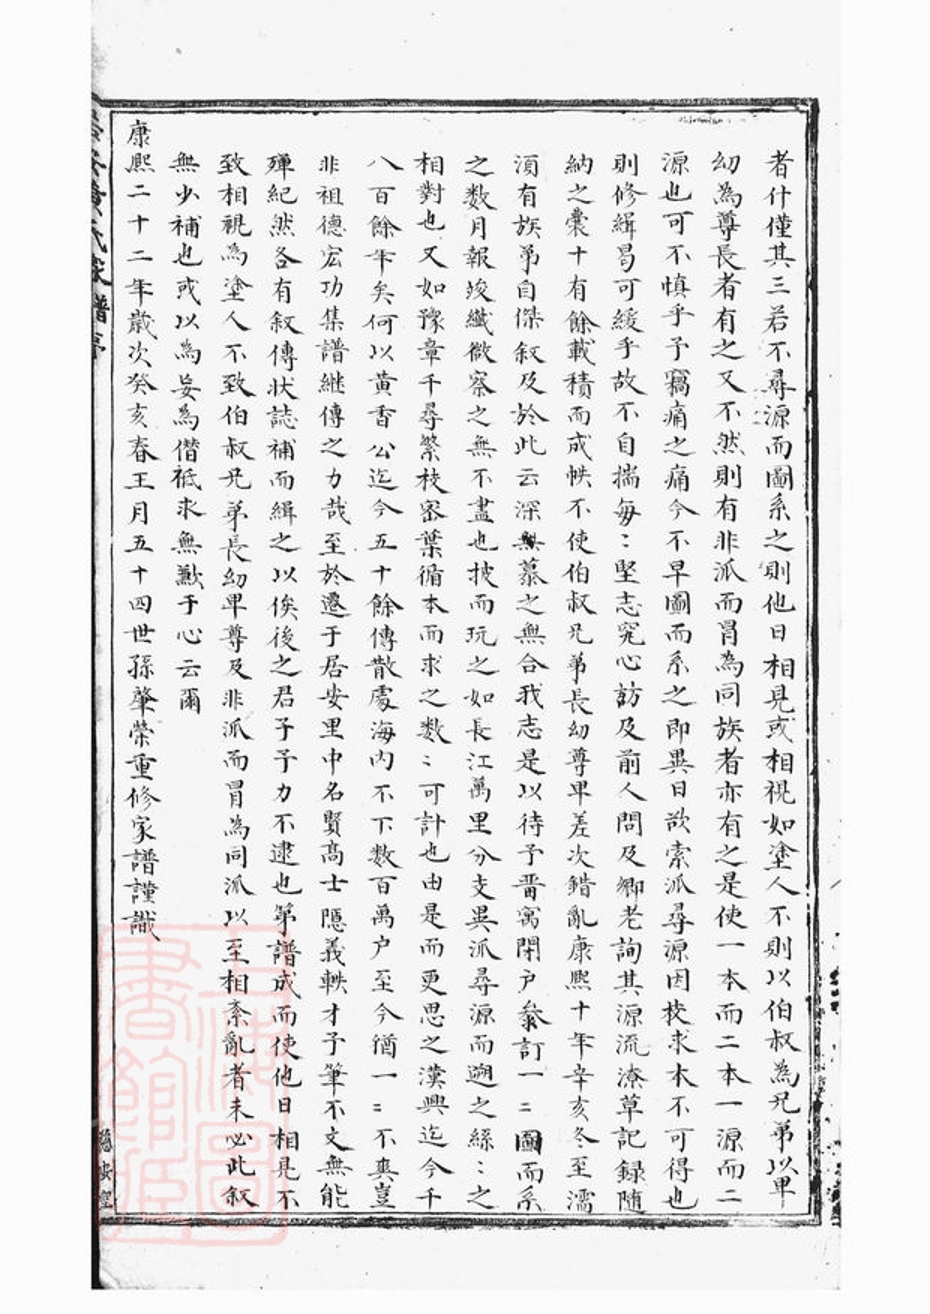 者什僅其三若不尋源而圖系之則他日相見或相視如塗人不則以伯叔為兄弟以卑
幼為尊長者有之又不然則有非派而冒為同族者亦有之是使一本而二本一源而二
源也可不慎乎予竊痛之痛今不早圖而系之即異日欲索派尋源因枝求本不可得也
則修緝曷可緩乎故不自揣每〻堅志究心訪及前人問及鄉老詢其源流潦草記録隨
納之囊十有餘載積而成帙不使伯叔兄弟長幼尊卑差次錯亂康熙十年辛亥冬至濡
湏有族弟自傑叙及於此云深無慕之無合我志是以待予晋寓閉户叅訂一〻圖而系
之数月報竣纖微察之無不盡也披而玩之如長江萬里分支異派尋源而遡之絲〻之
相對也又如豫章千尋繁枝宻葉循本而求之数〻可計也由是而更思之漢興迄今千
八百餘年矣何以黄香公迄今五十餘傳散處海内不下数百萬户至今猶一〻不爽豈
非祖德宏功集譜継傳之力哉至於遷于居安里中名賢髙士隱義軼才予筆不文無能
殫紀然各有叙傳状誌補而緝之以俟後之君子予力不逮也第譜成而使他日相見不
致相視為塗人不致伯叔兄弟長幼卑尊及非派而冒為同派以至相紊亂者未必此叙
無少補也或以為妄為僭祗求無歉于心云爾
康熙二十二年歲次癸亥春王月五十四世孫肇榮重修家譜謹識
黄氏家譜
上海圖書館藏